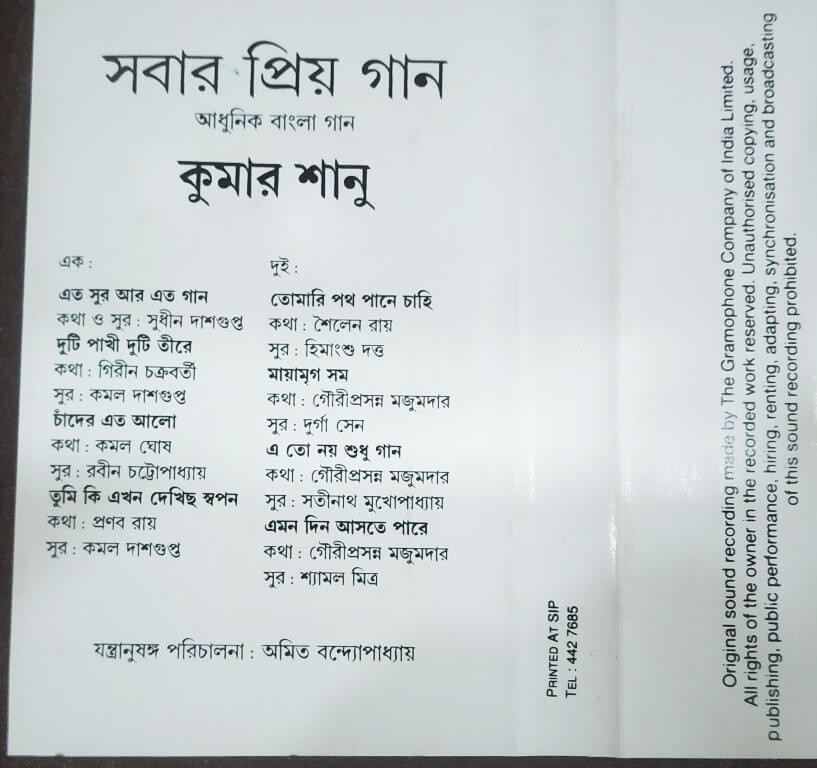 সবার প্রিয় গান
আধুনিক বাংলা গান
কুমার শানু
এক :
এত সুর আর এত গান
কথা ও সুর : সুধীন দাশগুপ্ত
দুটি পাখী দুটি তীরে
কথা : গিরীন চক্রবর্তী
সুর : কমল দাশগুপ্ত
চাঁদের এত আলো
কথা : কমল ঘোষ
সুর : রবীন চট্টোপাধ্যায়
তুমি কি এখন দেখিছ স্বপন
কথা : প্রণব রায়
সুর : কমল দাশগুপ্ত
দুই :
তোমারি পথ পানে চাহি
কথা : শৈলেন রায়
সুর : হিমাংশু দত্ত
মায়ামৃগ সম
কথা : গৌরীপ্রসন্ন মজুমদার
সুর : দুর্গা সেন
এ তো নয় শুধু গান
কথা : গৌরীপ্রসন্ন মজুমদার
সুর : সতীনাথ মুখোপাধ্যায়
এমন দিন আসতে পারে
কথা : গৌরীপ্রসন্ন মজুমদার
সুর : শ্যামল মিত্র
যন্ত্রানুষঙ্গ পরিচালনা : অমিত বন্দ্যোপাধ্যায়
PRINTED AT SIP
TEL : 442 7685
Original sound recording made by The Gramophone Company of India Limited.
All rights of the owner in the recorded work reserved. Unauthorised copying, usage,
publishing, public performance, hiring, renting, adapting, synchronisation and broadcasting
of this sound recording prohibited.